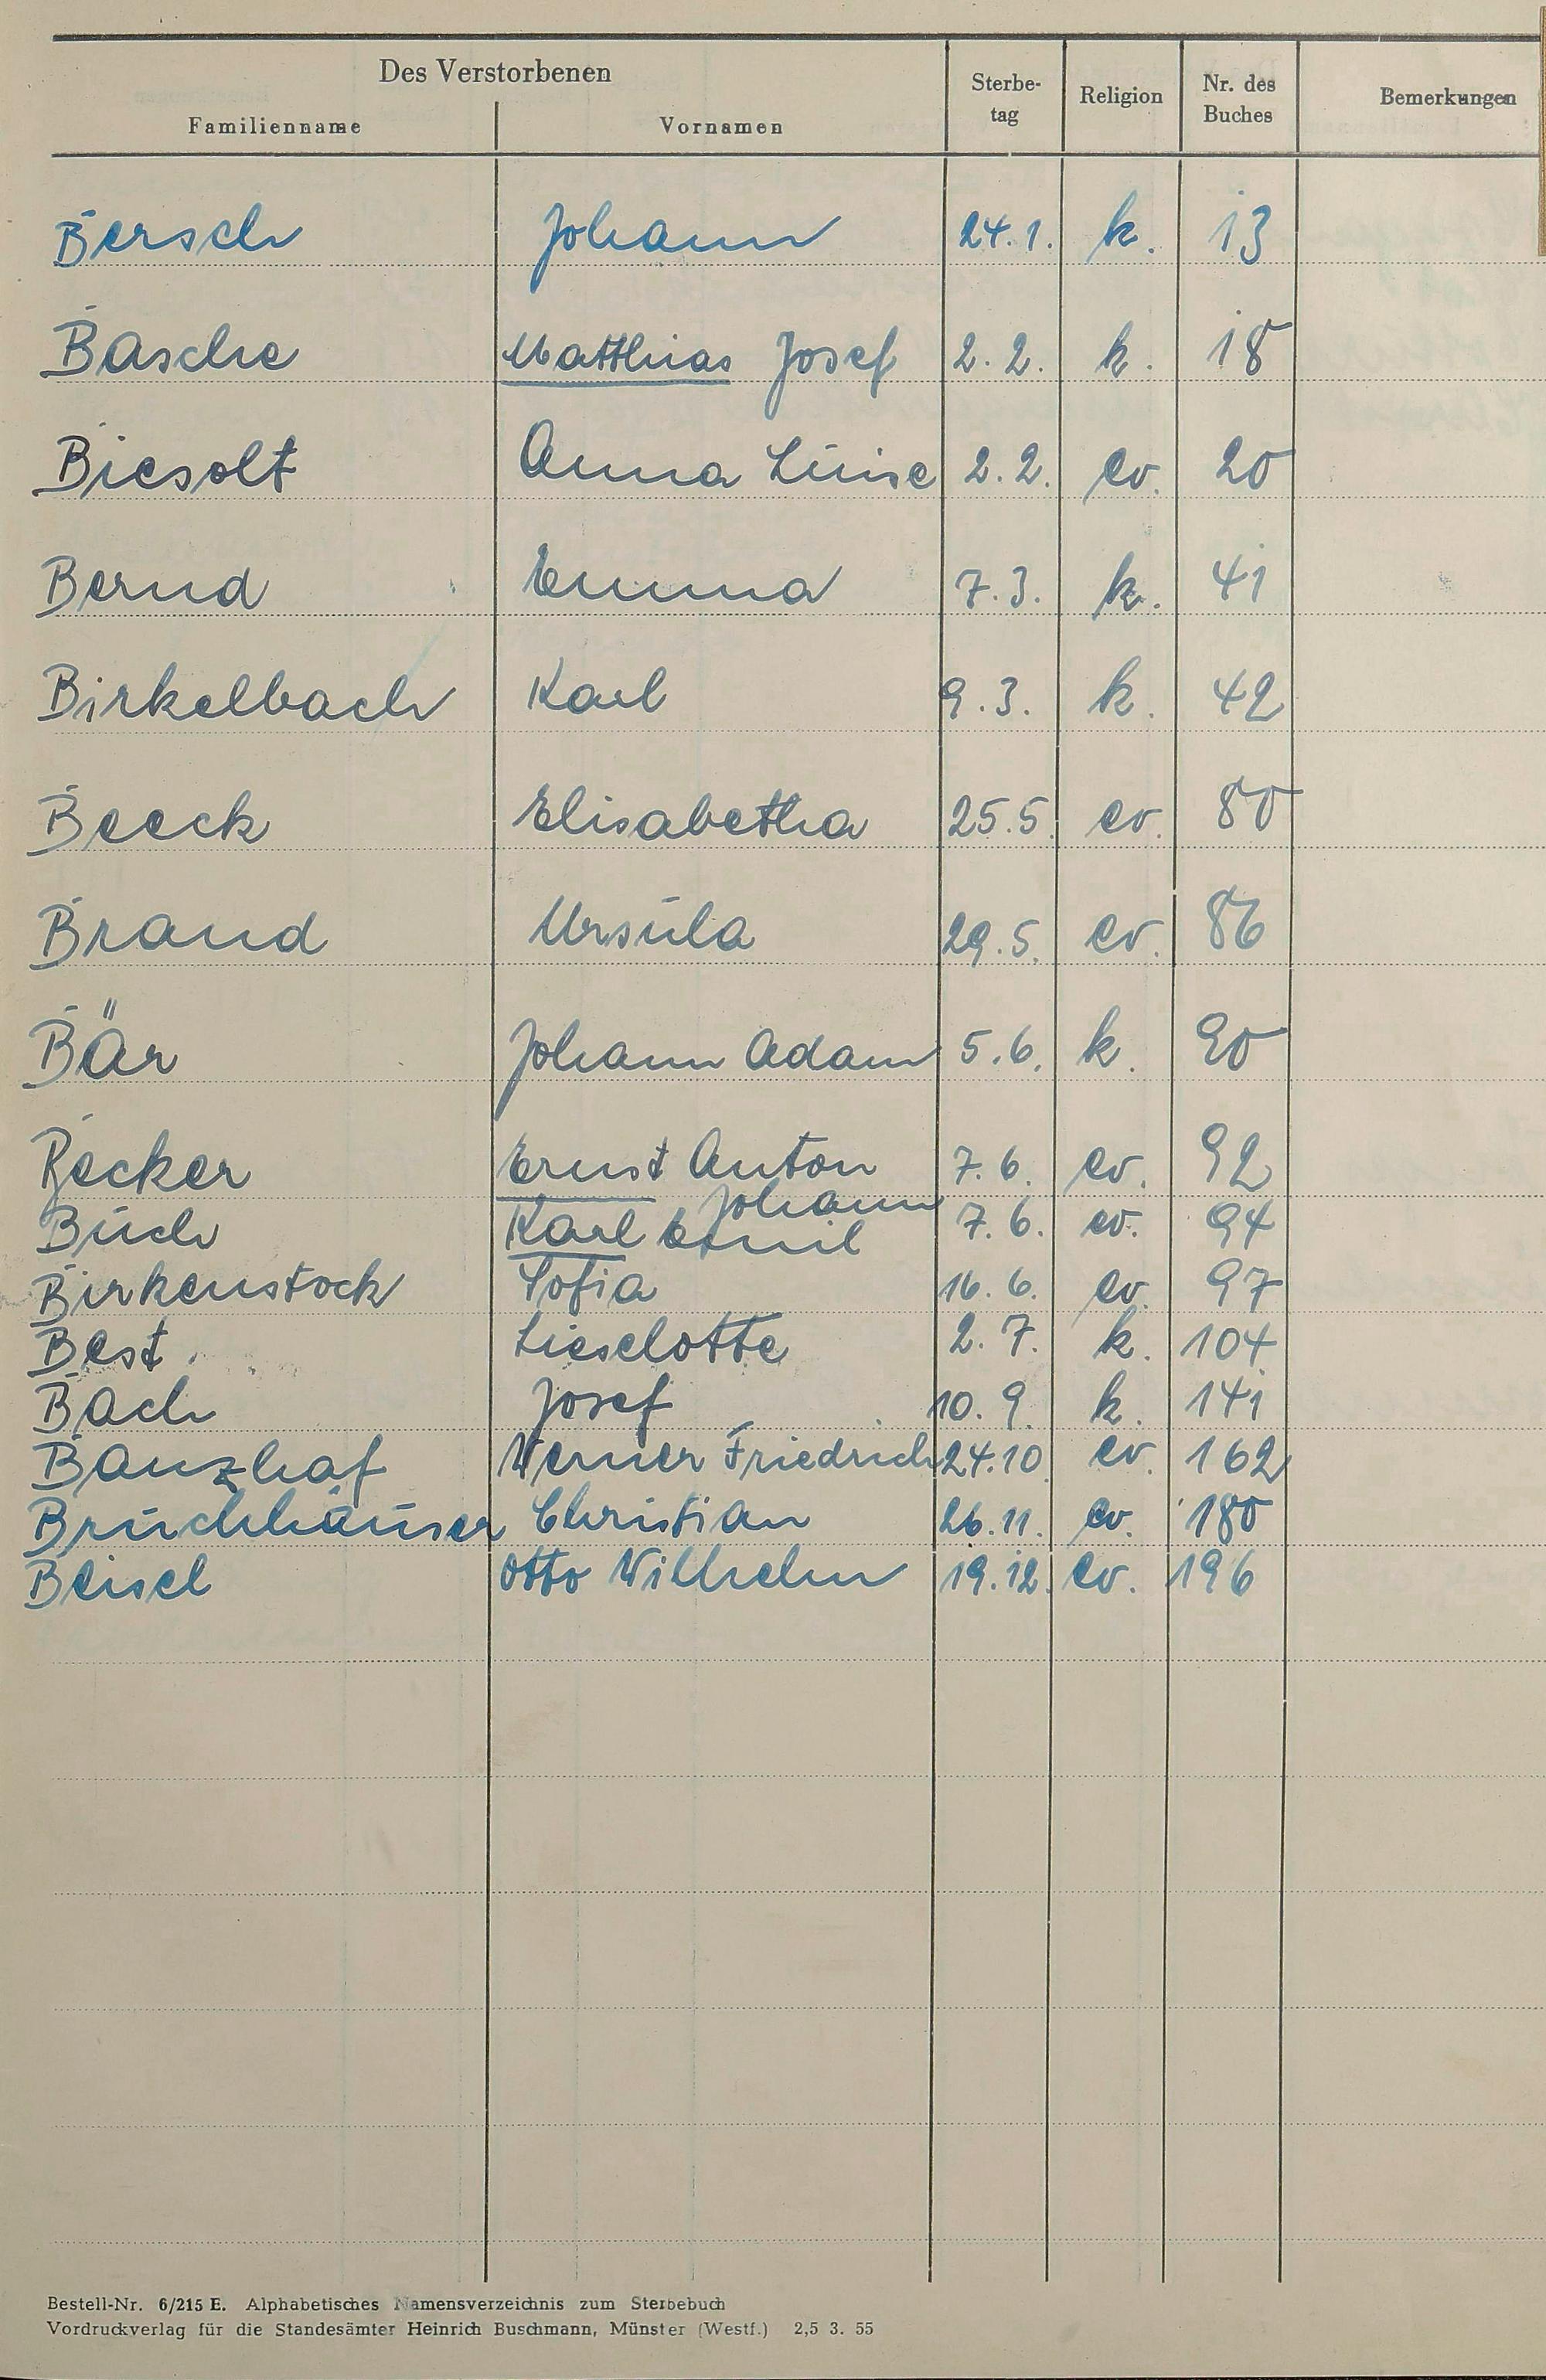 Des Verstorbenen
Familienname Vornamen Sterbe-tag Religion Nr. des Buches Bemerkungen
Bersch Johann 24.1. k. 13
Basche Matthias Josef 2.2. k. 18
Biesolt Anna Luise 2.2. ev. 20
Bernd Emma 7.3. k. 41
Birkelbach Karl 9.3. k. 42
Beeck Elisabetha 25.5. ev. 80
Brand Ursula 29.5. ev. 86
Bär Johann Adam 5.6. k. 90
Becker Ernst Anton 7.6. ev. 92
Buch Karl Emil Johann 7.6. ev. 94
Birkenstock Sofia 16.6. ev. 97
Best Lieselotte 2.7. k. 104
Bach Josef 10.9. k. 141
Banzhaf Werner Friedrich 24.10. ev. 162
Bruchhäuser Christian 26.11. ev. 180
Beisel Otto Wilhelm 19.12. ev. 196
Bestell-Nr. 6/215 E. Alphabetisches Namensverzeichnis zum Sterbebuch
Vordruckverlag für die Standesämter Heinrich Buschmann, Münster (Westf.) 2,5 3. 55